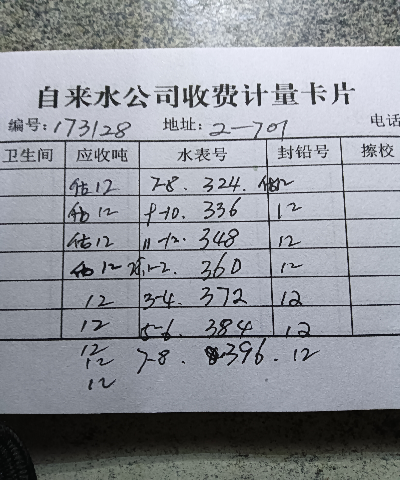 自来水公司收费计量卡片
编号: 173128 地址: 2-701 电话
卫生间 应收吨 水表号 封铅号 擦校
估12 7-8. 324. 估12
估12 9-10. 336 12
估12 11-12. 348 12
估12 1-2. 360 12
12 3-4. 372 12
12 5-6. 384 12
12
12 7-8. 396. 12
12